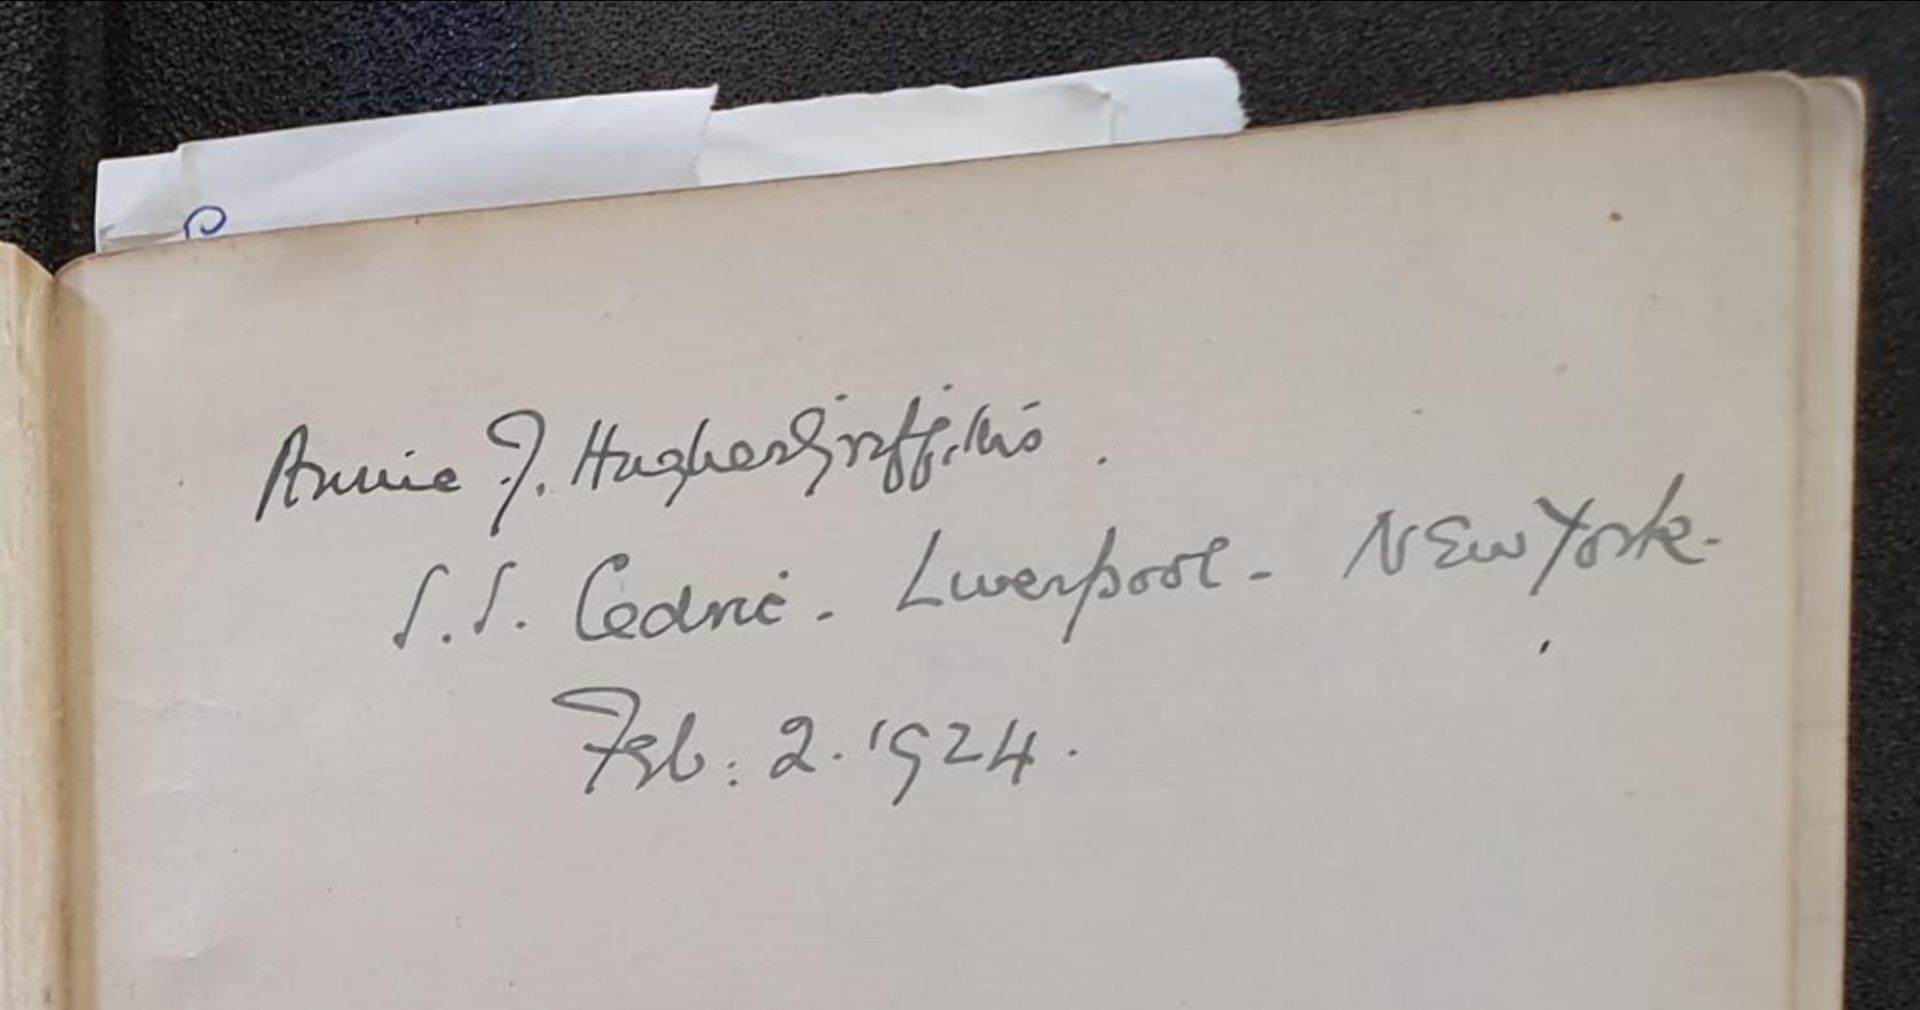 Annie J. Hughes Griffiths.
S.S. Cedric. Liverpool - NEw York.
Feb: 2. 1924.